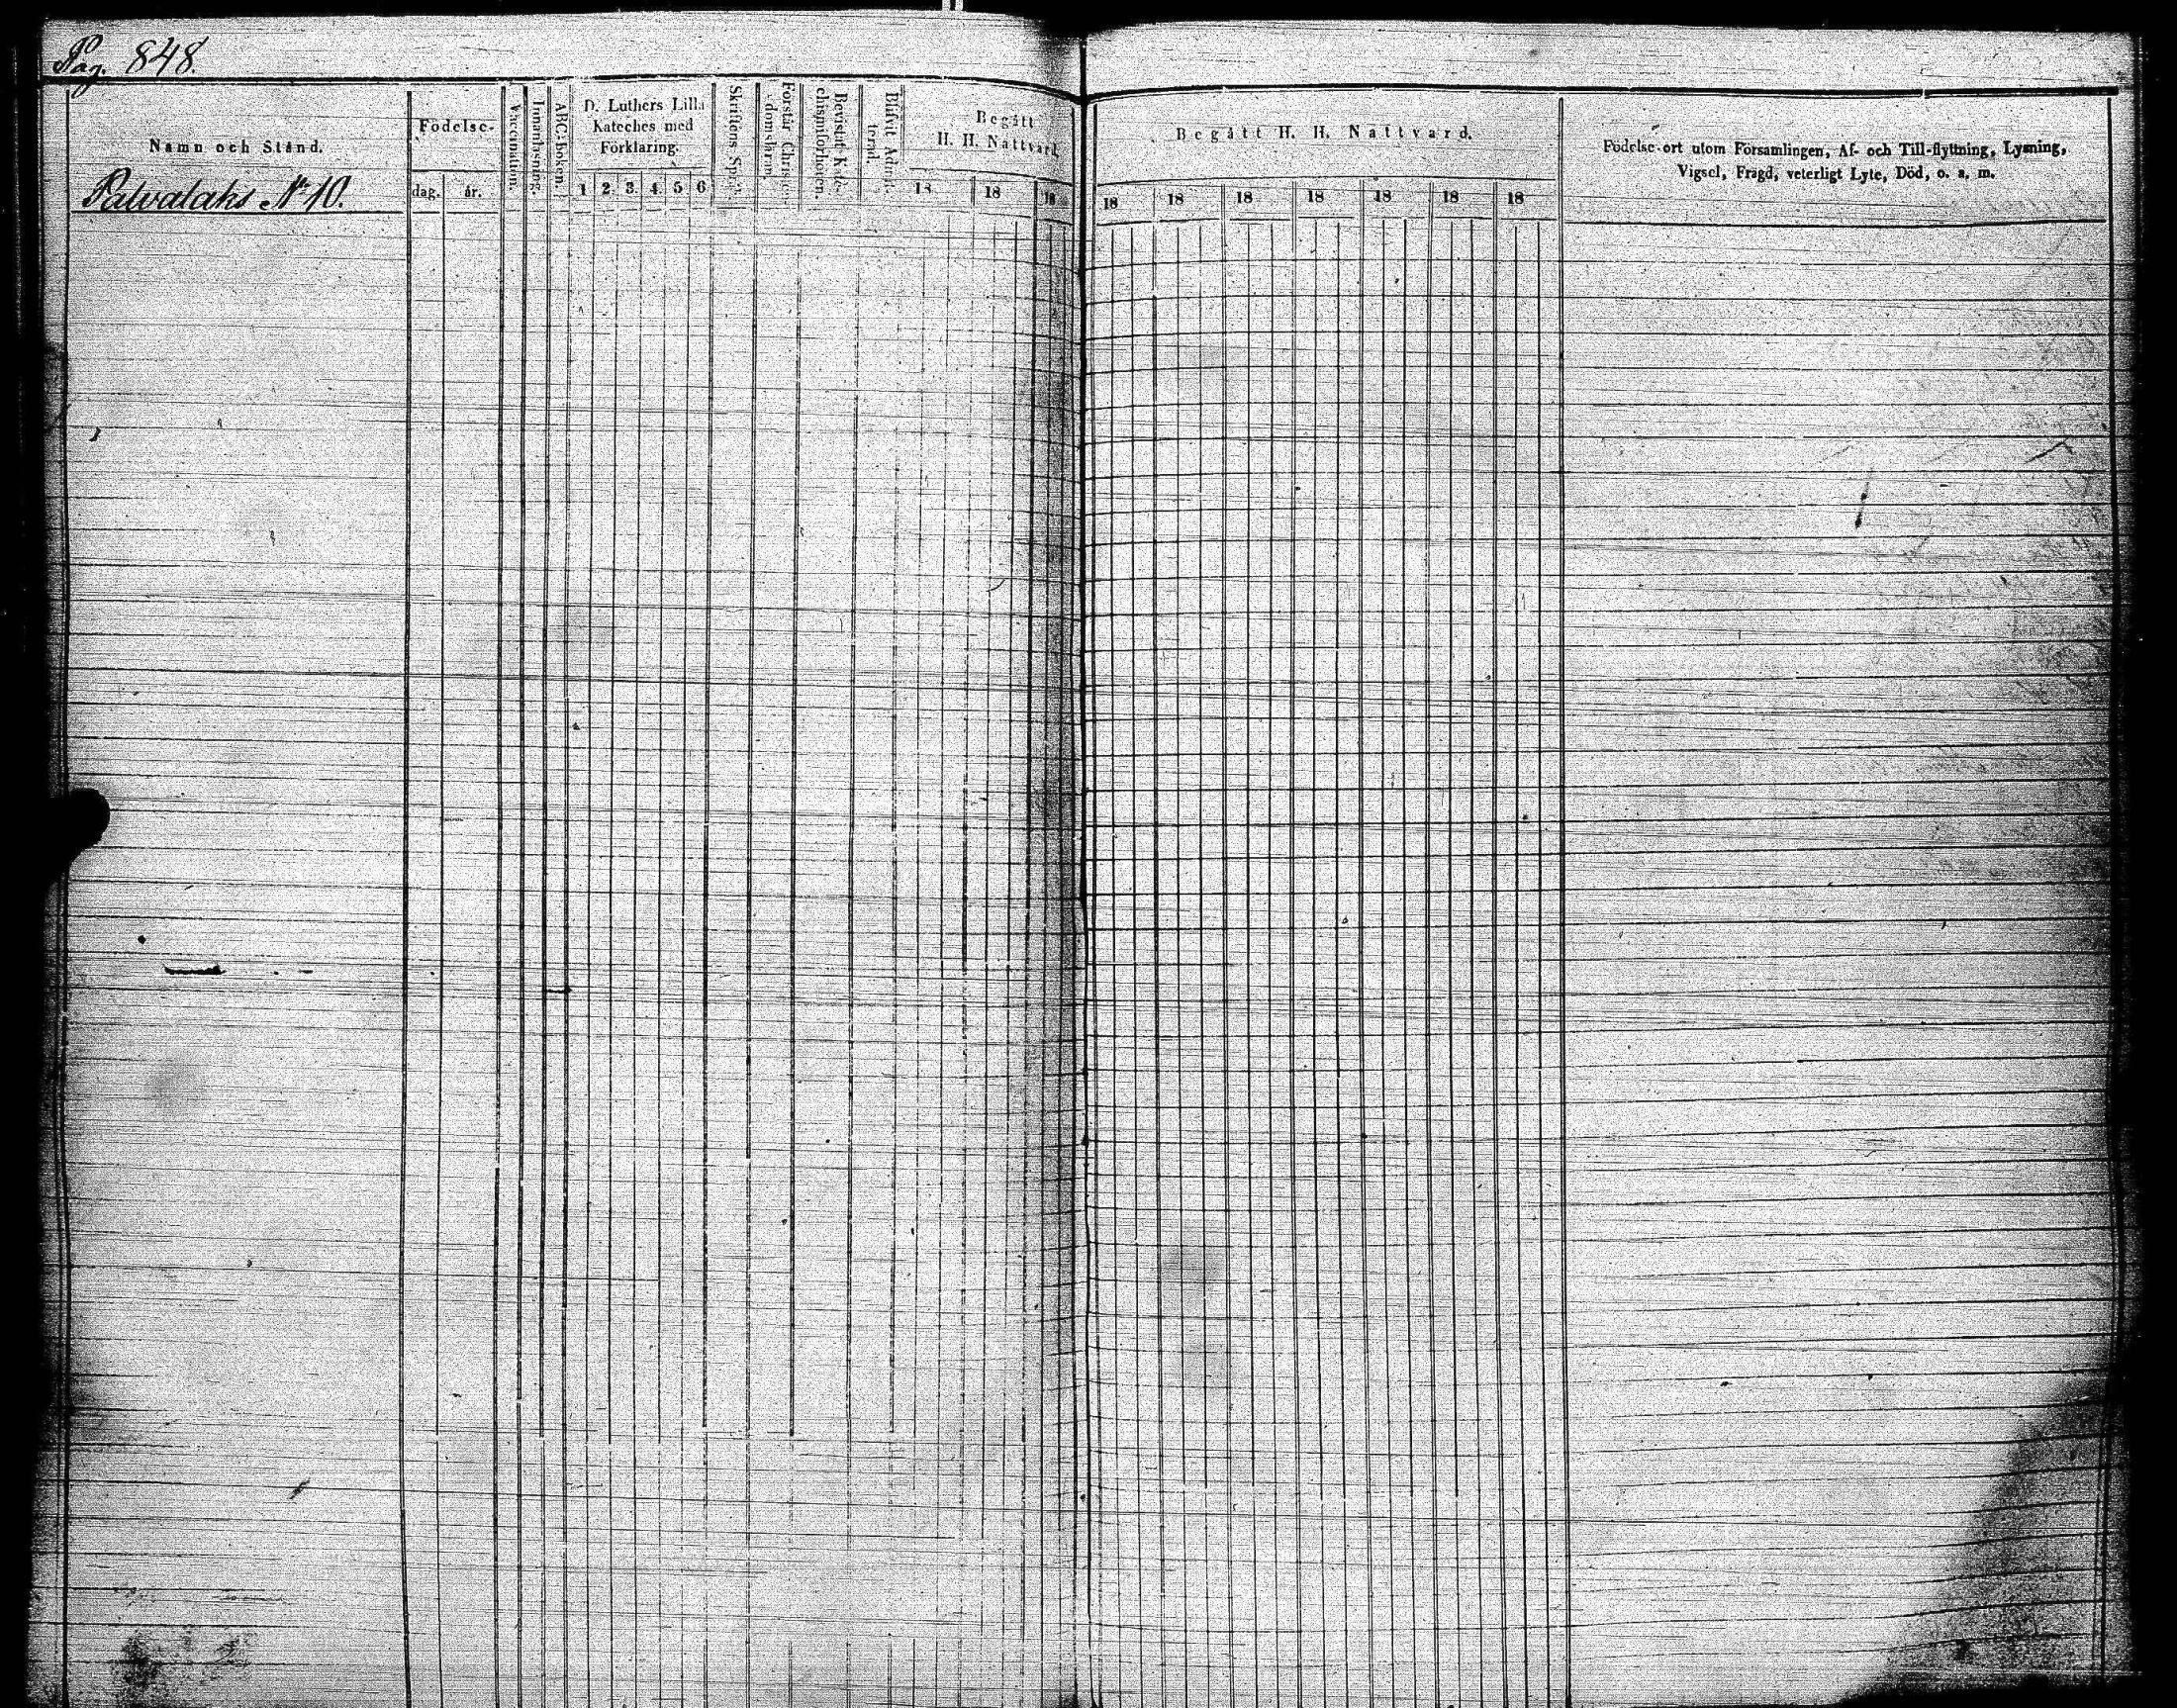 Pag. 848.
Namn och Stånd.
Palvalaks No 10.
Födelse-
dag. år.
Vaccination.
Innanläsning.
ABC-boken.
D. Luthers Lilla
Kateches med
Förklaring.
1 2 3 4 5 6
Skriftens Språk.
Förstår Christen-
domsläran.
Bevistat Kate-
chismiförhören.
Blifvit Admit-
terad.
Begått
H. H. Nattvard.
18 18 18
Begått H. H. Nattvard.
18 18 18 18 18 18 18
Födelse-ort utom Församlingen, Af- och Till-flyttning, Lysning,
Vigsel, Frägd, veterligt Lyte, Död, o. s. m.